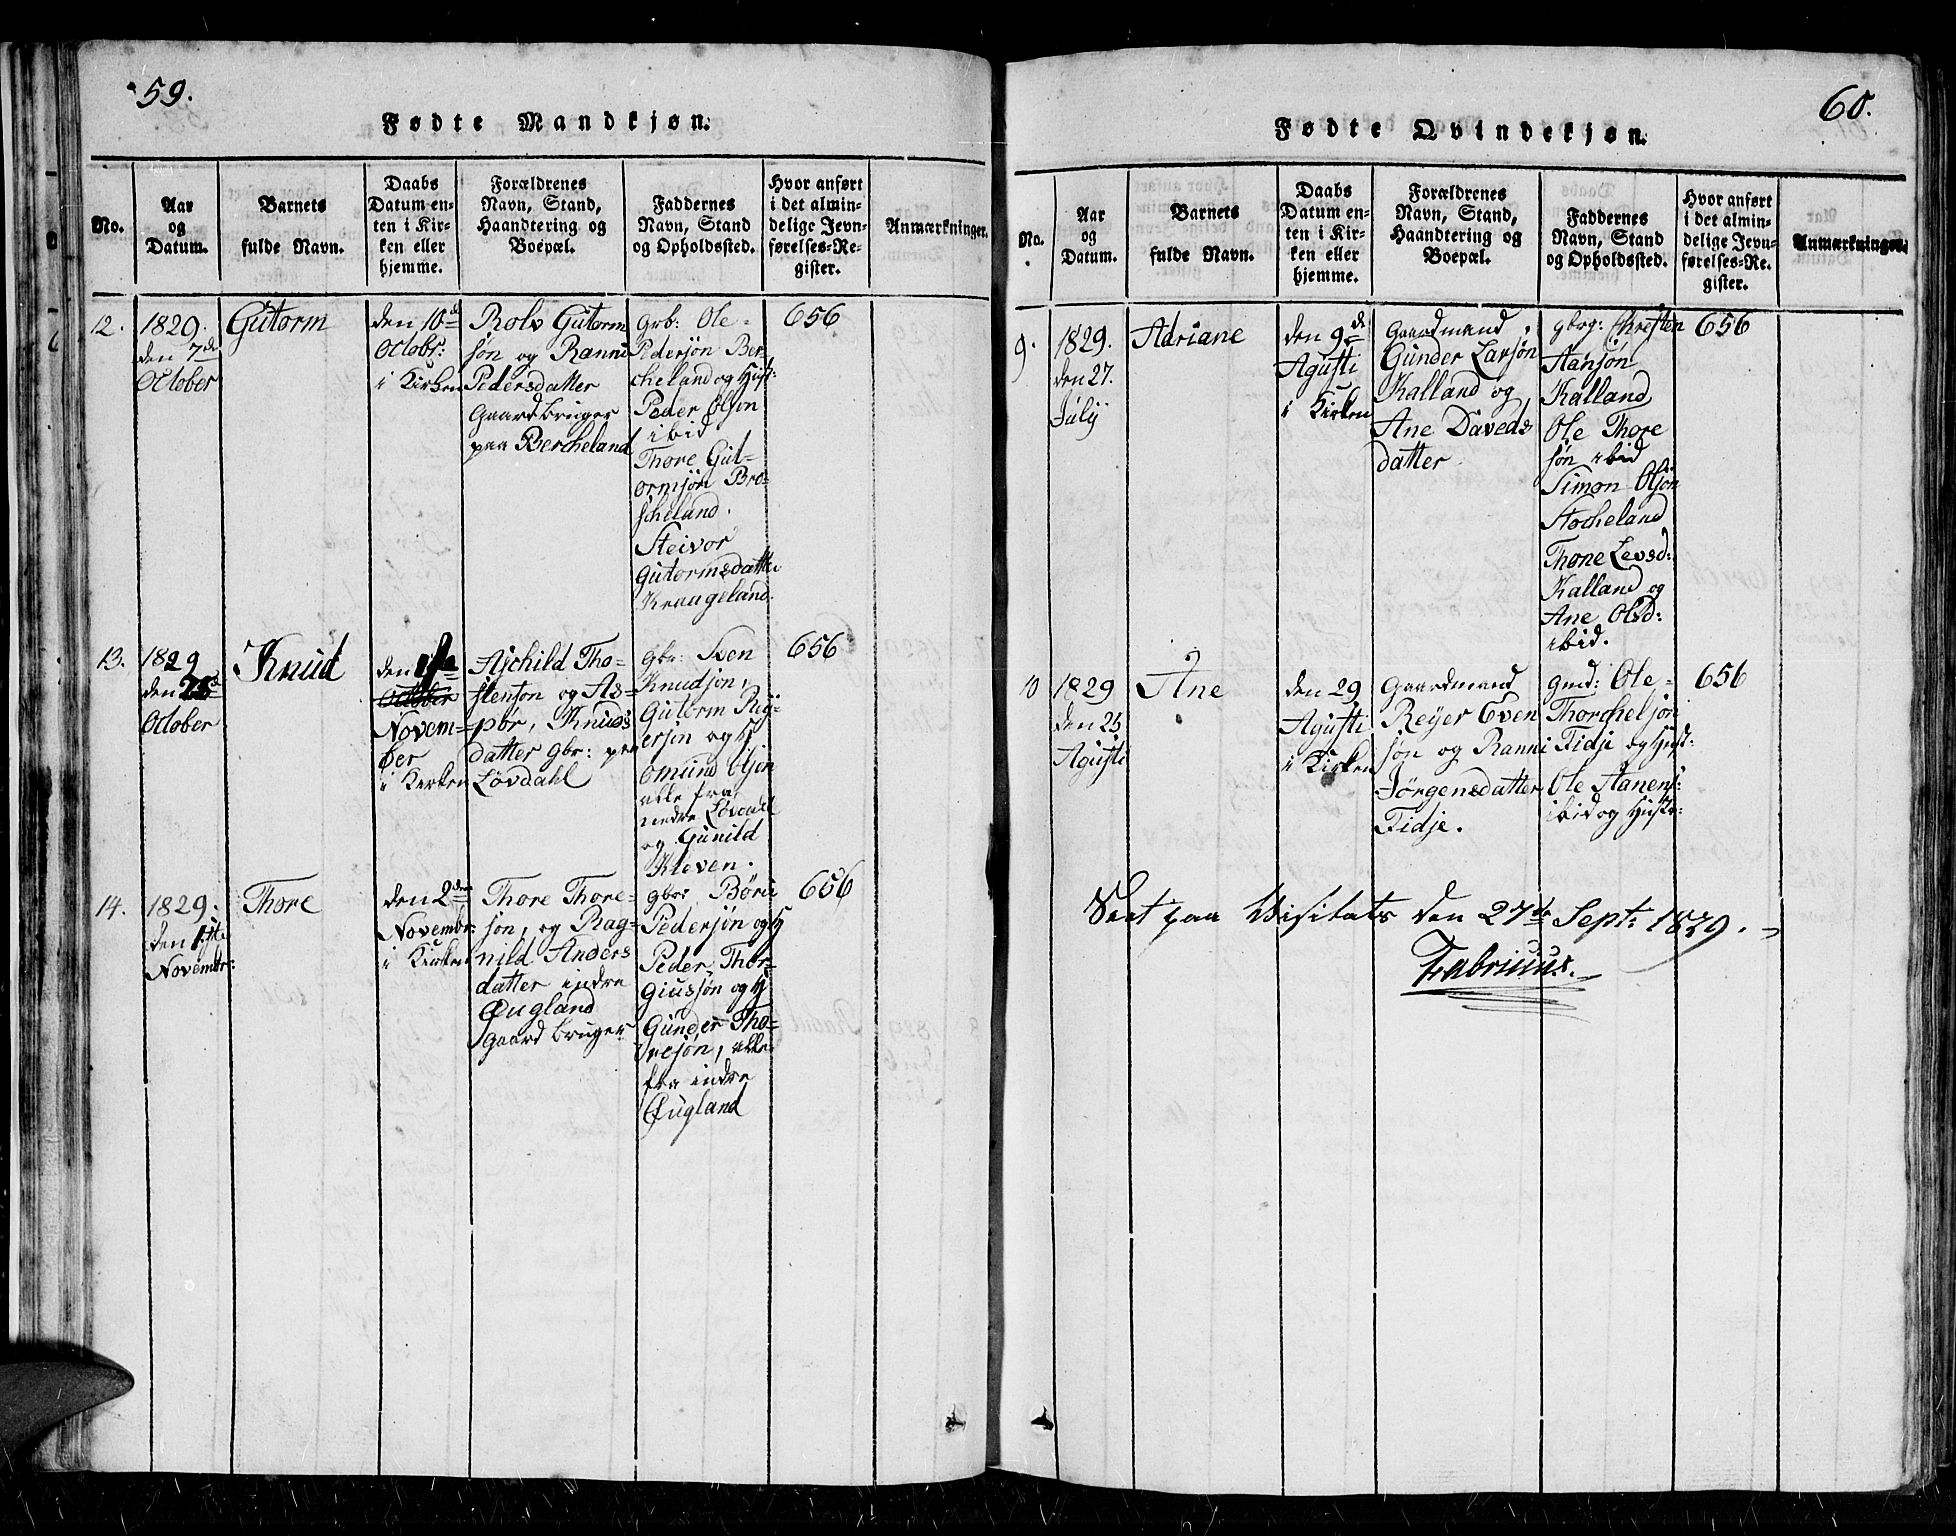 59.
Fødte Mandkjøn.
No.
Aar
og
Datum.
Barnets
fulde Navn.
Daabs
Datum en-
ten i Kir-
ken eller
hjemme.
Forældrenes
Navn, Stand,
Haandtering og
Boepæl.
Faddernes
Navn, Stand
og Opholdssted.
Hvor anført
i det almin-
delige Jevn-
førelses-Re-
gister.
Anmærkninger.
12.
1829.
den 7de
October
Gutorm
den 10de
Octobr:
i Kirken
Rolv Gutorm
søn og Ranni
Pedersdatter
Gaardbruger
paa Bercheland
Grb: Ole
Pedersøn Ber-
cheland og Hust:
Peder Olson
ibid
Thore Gut-
ormsøn Bro-
scheland.
Steivor
Gutormsdatte
Kraageland.
656
13.
1829
den 25de
October
Knud
den
October
Novem-
ber
i Kirken
Aschild Tho-
stenson og As-
pør, Knuds
datter gbr: paa
Løvdahl
gbr: Sven
Knudsøn,
Gutorm Rig-
ersøn og H
Omund Olsen
alle fra
nedre Løvdal
og Gunild
Kleven.
656
14.
1829.
den 1ste
Novembr:
Thore
den 2den
Novembr:
i Kirken
Thore Thore-
søn, og Rag-
nild Anders
datter indre
Øugland
gaardbruger
gbr: Børu
Pedersøn og H
Peder Thor-
Giussøn og H
Gunder Tho-
resøn, alle
fra indre
Øugland
656
60.
Fødte Qvindekjøn.
No.
Aar
og
Datum.
Barnets
fulde Navn.
Daabs
Datum en-
ten i Kir-
ken eller
hjemme.
Forældrenes
Navn, Stand,
Haandtering og
Boepæl.
Faddernes
Navn, Stand
og Opholdssted.
Hvor anført
i det almin-
delige Jevn-
førelses-Re-
gister.
Anmærkninger.
9.
1829.
den 27.
Julij
Adriane
den 9de
Agusti
i Kirken
Gaardmand
Gunder Larsøn
Kalland og
Ane Daveds
datter
gbrg: Chresten
Aansøn
Kalland
Ole Thore
søn ibid
Simon Olsøn
Stocheland
Thone Levsd:
Kalland og
Ane Olsd:
ibid.
656
10
1829
den 23
Agusti
Ane
den 29
Agusti
i Kirken
Gaardmand
Reyer Even
søn og Ranni
Jørgensdatter
Fidje.
gmd: Ole
Thorchelsøn
Fidje og Hust:
Ole Aanens:
ibid og Hustr:
656
Seet paa Visitats den 27de Septr: 1829.
Fabricius.